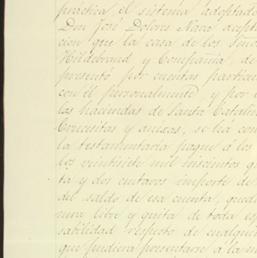 practica, el sistema adoptado
Don José Dolores Nava acept
cion que la casa de los Seño
Hildebrand y Compañia, de
presentó por cuentas particu
con él personalmente y por
las haciendas de Santa Catalin
Crucesitas y anexas, sea con
la testamentaria pague á los
los veintisiete mil seiscientos
ta y dos centavos importe de
del saldo de esa cuenta, qued
mira libre y quita de toda es
sabilidad respecto de cualquie
que pudiera presentarse a la